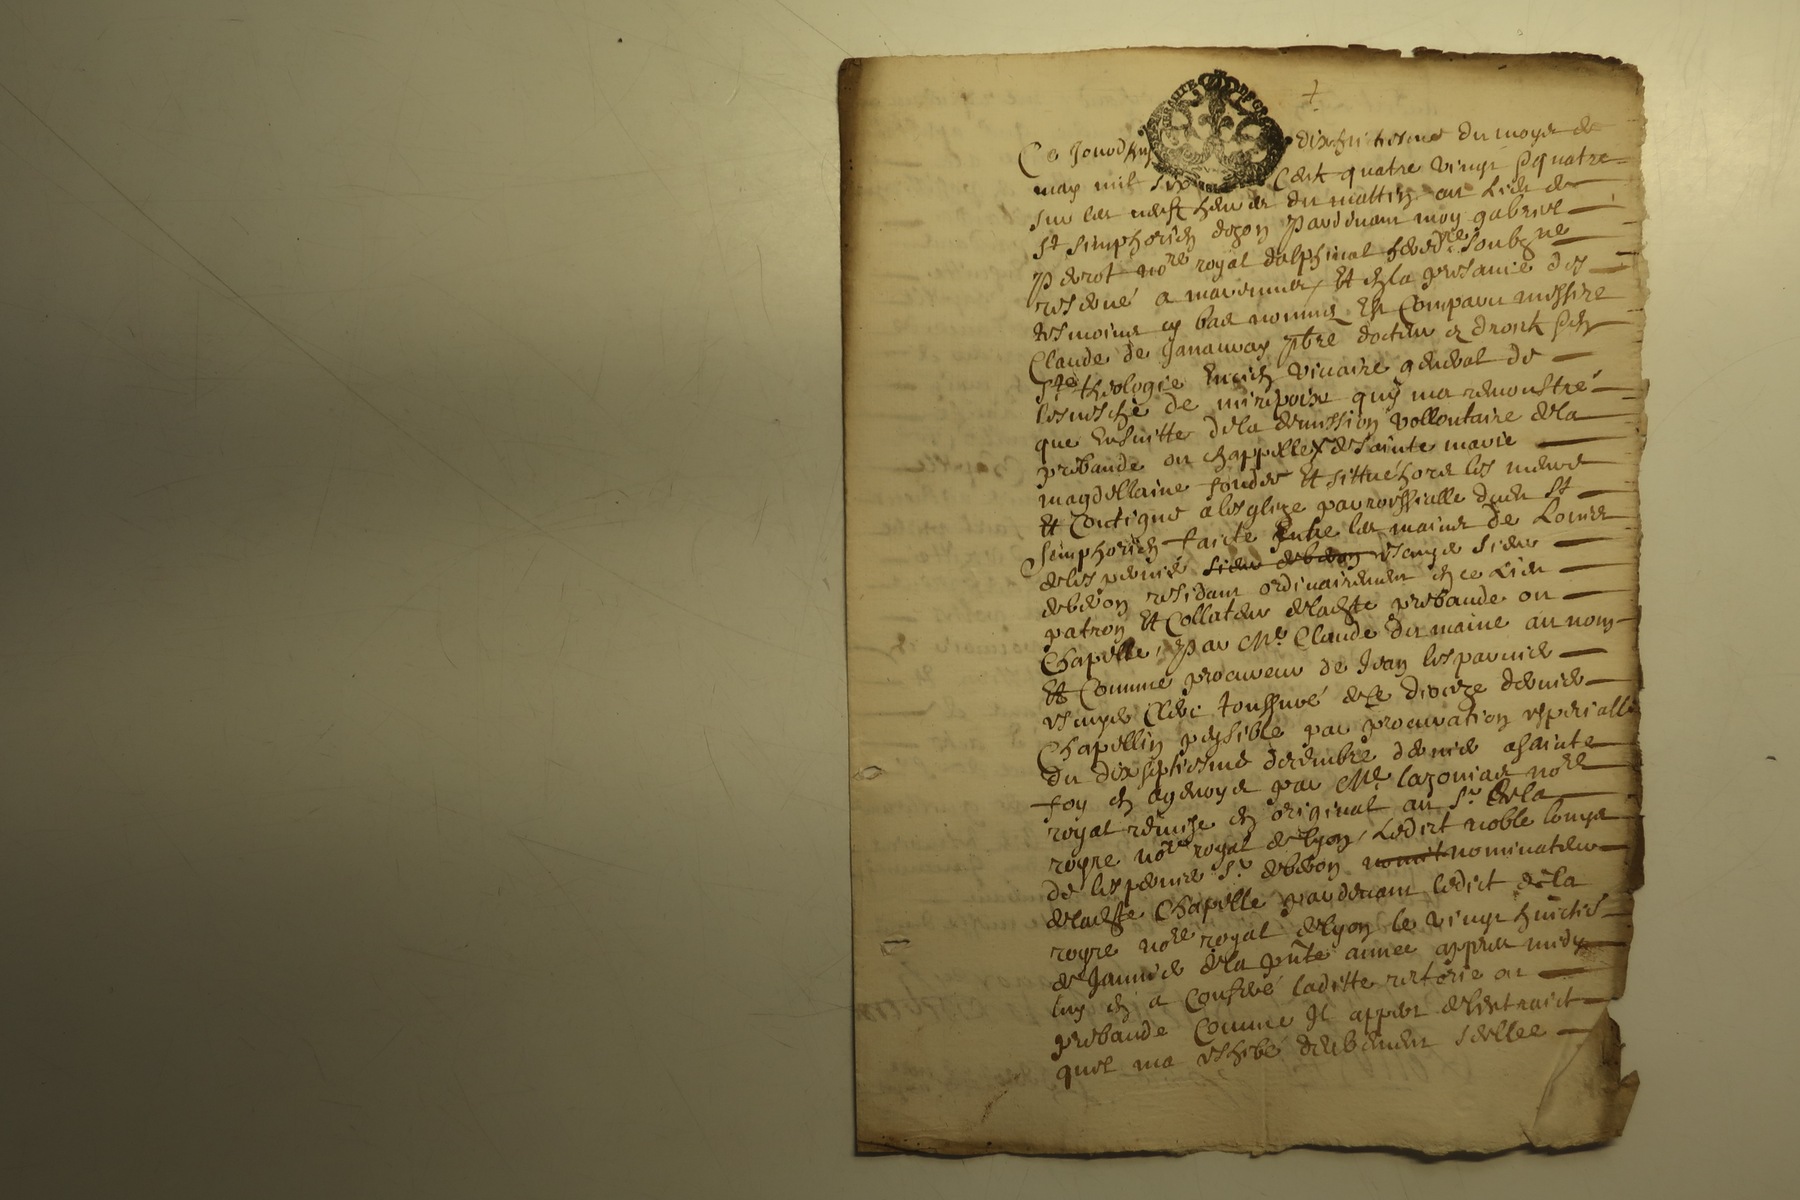 Ce Jourdhuy dixhuictiesme du moys de
may mil six Cent quatre vingt quatre
sur les neuf heures du mattin au Lieu de
St simphorien dozon pardevant moy gabriel
perot nore royal dalphinal heredre soubzne
reservé a marennes, Et en la presance des
tesmoins cy bas nommes Est Comparu messire
Claude de Janauray pbre docteur en droit
Ste theologie vicaire general de
levesché de mirepoix quy ma remonstré
que Ensuitte dela demission vollontaire dela
prebande ou chappelle de sainte marie
magdellaine fondée Et sittué hors les meurs
Et Contigue a lesglize parroissialle dudt St
Simphorien faicte Entre les mains de Louis
delespernié sieur debeon sieur
debeon residant ordinairement en ce Lieu
patron Et Collateur deladte prebande ou
Chapelle, par Me Claude dumaine au nom
Et Comme procureur de Jean lesparnié
Clerc tonssuré de ce dioceze dernier
Chapellin pezible par procuration especialle
du dixseptiesme decembre dernier a sainte
foy en agenoys par Me lazonias nore
royal remise en original au Sr dela
royre nore royal de lyon, Ledict noble louys
de lespernie Sr debeon nomi nominateur
deladte Chapelle pardevant ledict dela
royre nore royal de lyon le vingt huictie
de Janvier dela pnte année appres midy
luy en a Conferé laditte rettorie ou
prebande Comme Il appert de lextraict
quil ma exhibé deubement scellee